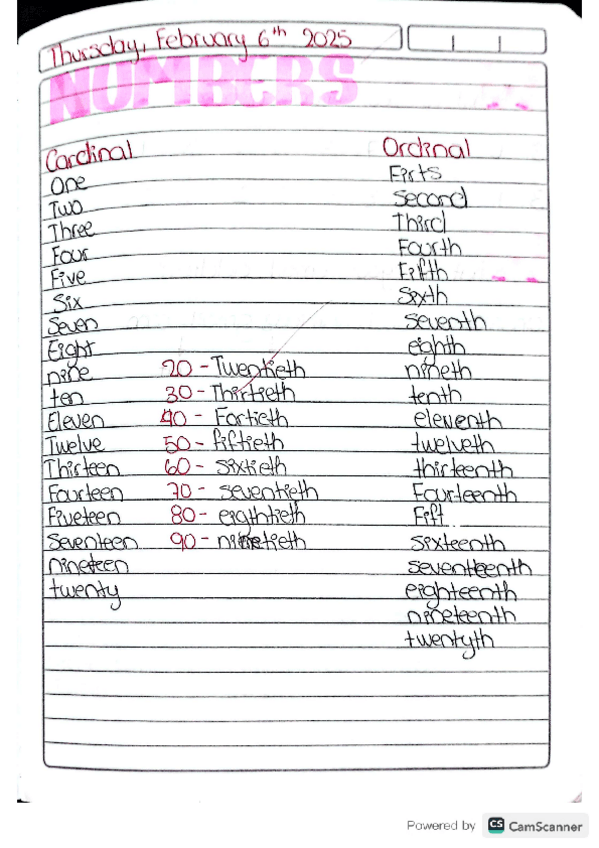 Thursday, February 6th 2025
NUMBERS
Cardinal Ordinal
One Firts
Two Second
Three Third
Four Fourth
Five Fifth
Six Sixth
Seven seventh
Eight eighth
nine 20 - Twentieth nineth
ten 30 - Thirtieth tenth
Eleven 40 - Fortieth eleventh
Twelve 50 - fiftieth twelveth
Thirteen 60 - sixtieth thirteenth
Fourteen 70 - seventieth Fourteenth
Fiveteen 80 - eighthtieth Fift
Seventeen 90 - ninetieth sixteenth
nineteen seventeenth
twenty eighteenth
nineteenth
twentyth
Powered by CS CamScanner